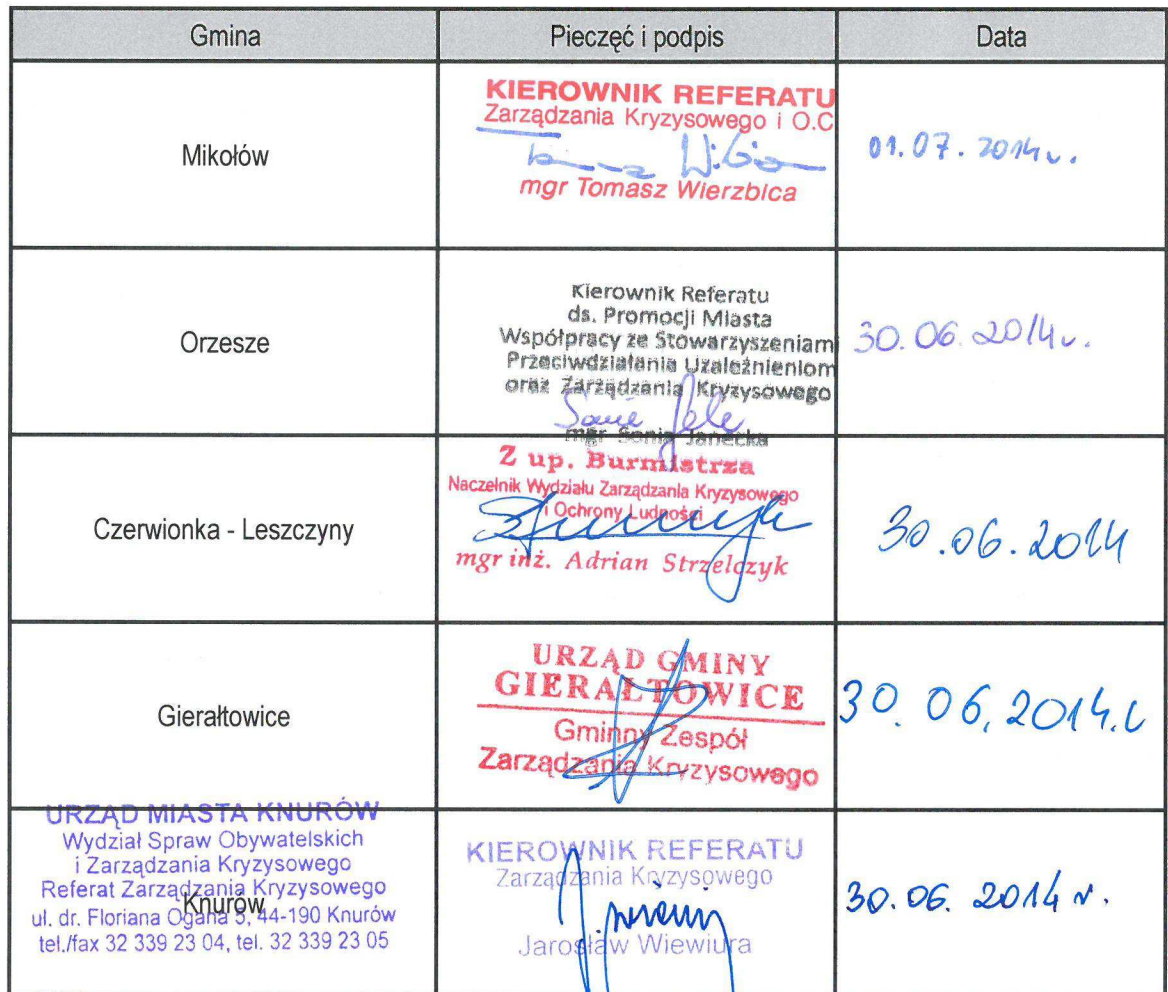 Gmina Pieczęć i podpis Data
Mikołów
KIEROWNIK REFERATU
Zarządzania Kryzysowego i O.C
mgr Tomasz Wierzbica
01.07.2014r.
Orzesze
Kierownik Referatu
ds. Promocji Miasta
Współpracy ze Stowarzyszeniami
Przeciwdziałania Uzależnieniom
oraz Zarządzania Kryzysowego
mgr Sonia Janecka
30.06.2014r.
Czerwionka - Leszczyny
Z up. Burmistrza
Naczelnik Wydziału Zarządzania Kryzysowego
i Ochrony Ludności
mgr inż. Adrian Strzelczyk
30.06.2014
Gierałtowice
URZĄD GMINY
GIERAŁTOWICE
Gminny Zespół
Zarządzania Kryzysowego
30.06.2014.r
URZĄD MIASTA KNURÓW
Wydział Spraw Obywatelskich
i Zarządzania Kryzysowego
Referat Zarządzania Kryzysowego
Knurów
ul. dr. Floriana Ogana 5, 44-190 Knurów
tel./fax 32 339 23 04, tel. 32 339 23 05
KIEROWNIK REFERATU
Zarządzania Kryzysowego
Jarosław Wiewiura
30.06.2014 r.